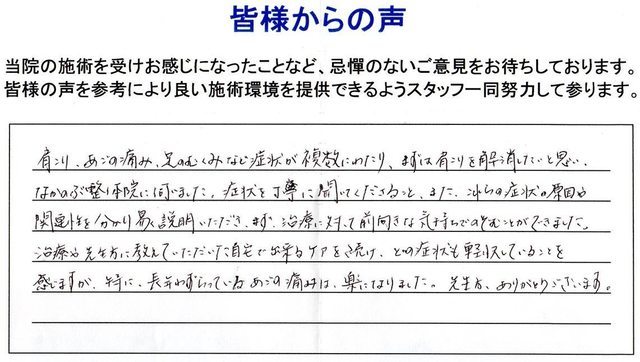 皆様からの声
当院の施術を受けお感じになったことなど、忌憚のないご意見をお待ちしております。
皆様の声を参考により良い施術環境を提供できるようスタッフ一同努力して参ります。
肩こり、あごの痛み、足のむくみなど症状が複数にわたり、まずは肩こりを解消したいと思い、
なかのぶ整体院に伺いました。症状を丁寧に聞いてくださること、また、これらの症状の原因や
関連性を分かり易く説明いただき、まず、治療に対して前向きな気持ちでのぞむことができました。
治療や先生方に教えていただいた自宅で出来るケアを続け、どの症状も軽減していることを
感じますが、特に、長年わずらっているあごの痛みは、楽になりました。先生方、ありがとうございます。